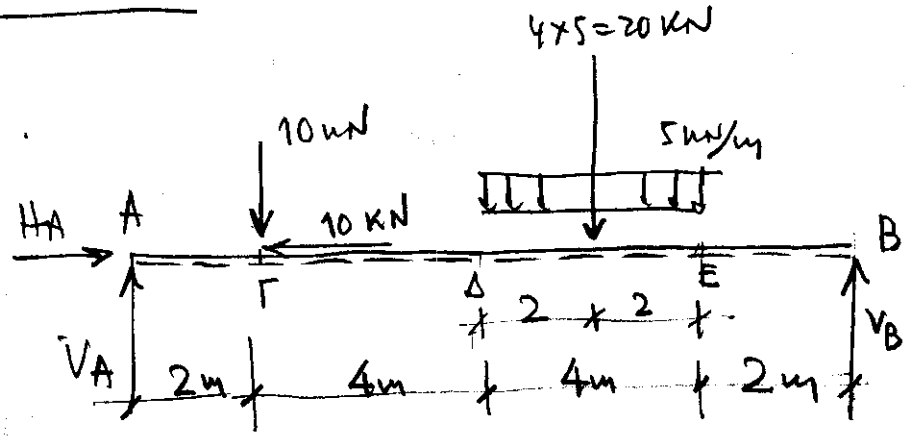 4×5=20 KN
10 KN
5 KN/m
HA
A
10 KN
B
Γ
Δ
E
2
2
VA
VB
2m
4m
4m
2m